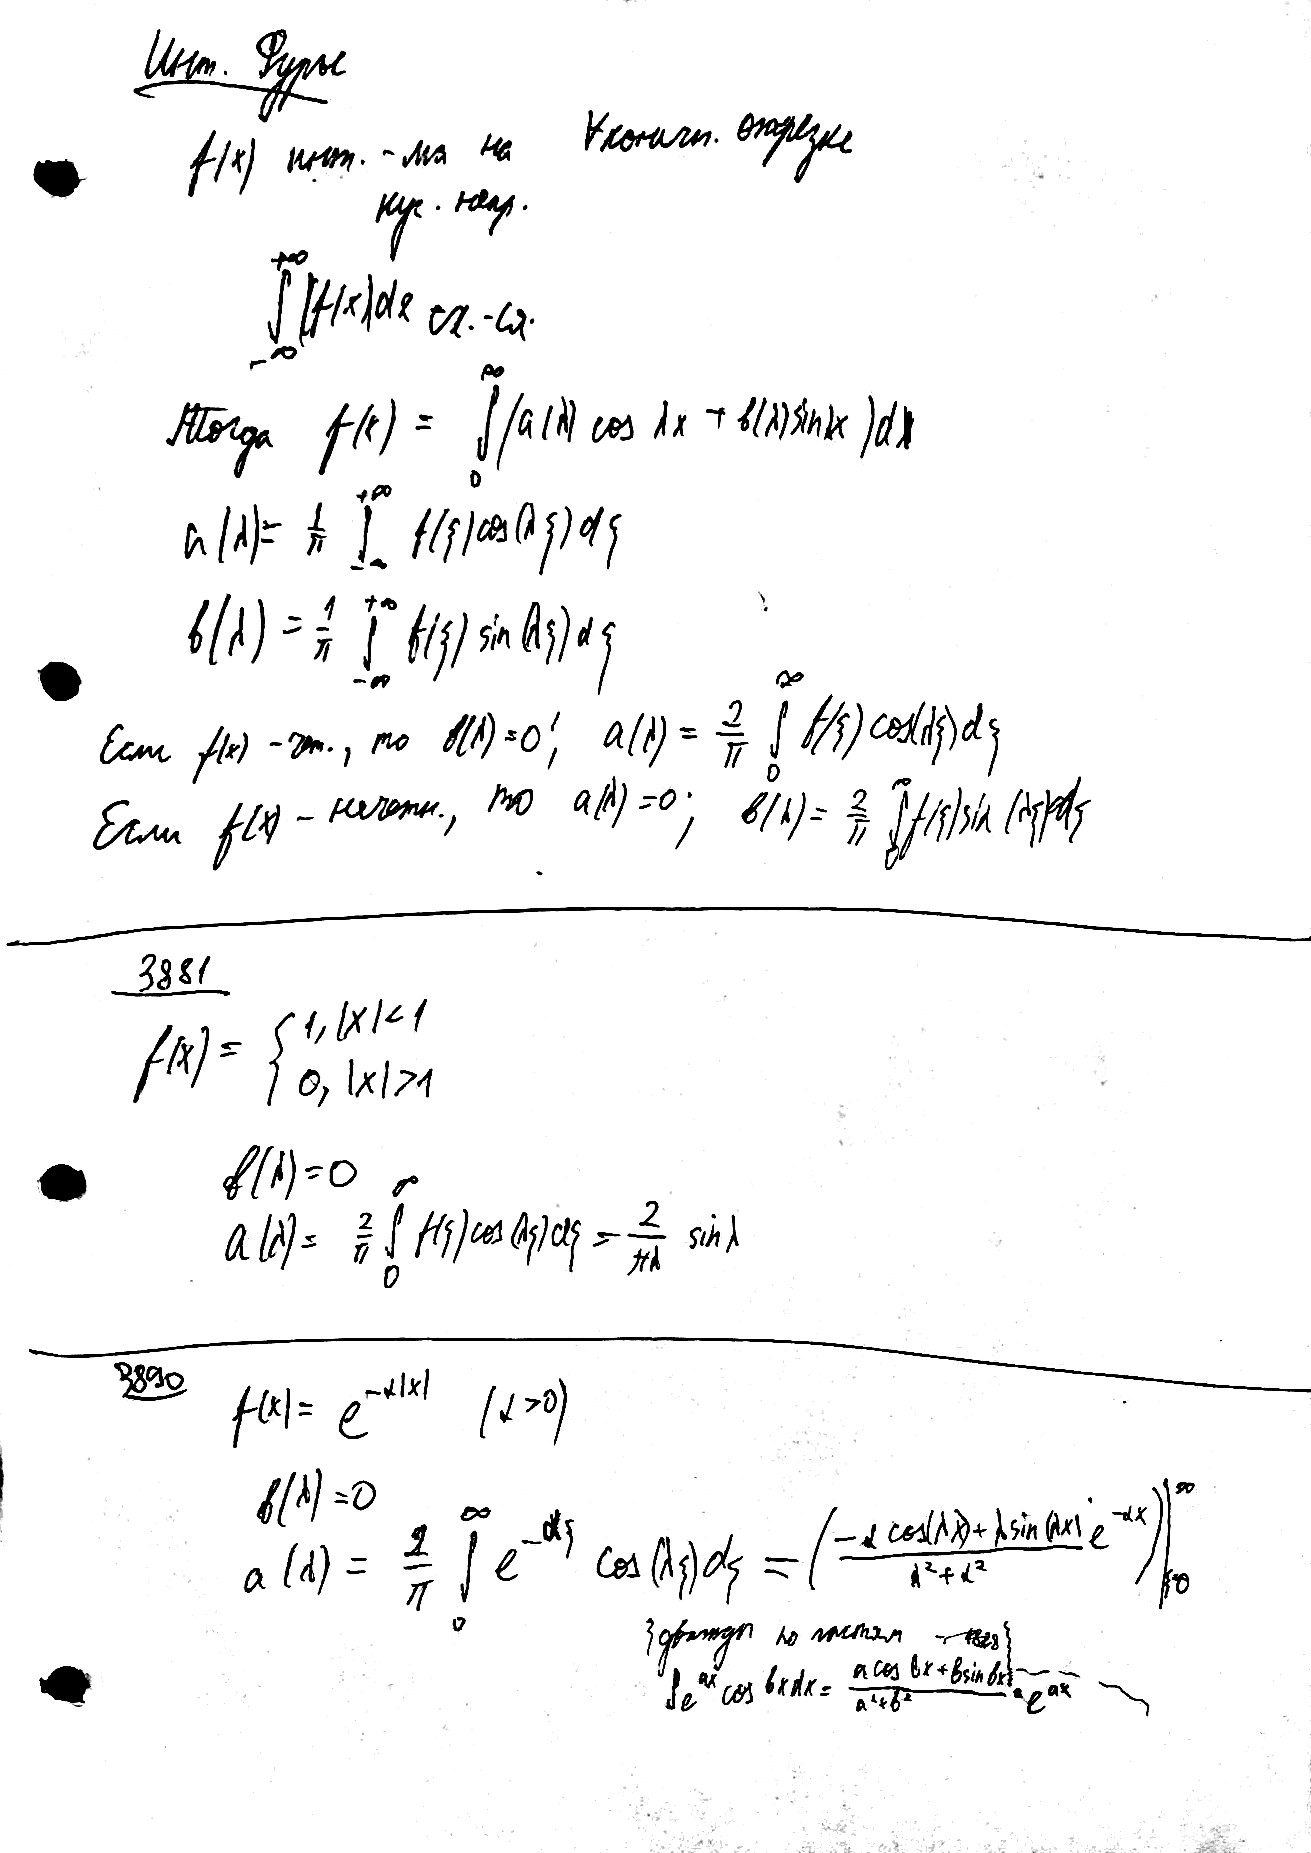 Инт. Фурье
f(x) инт.-мая на ∀ конечн. отрезке
кус. непр.
∫_{-∞}^{+∞} |f(x)|dx сх.-ся.
Тогда f(x) = ∫_0^∞ (a(λ) cos λx + b(λ) sin λx) dλ
a(λ) = 1/π ∫_{-∞}^{+∞} f(ξ) cos(λξ) dξ
b(λ) = 1/π ∫_{-∞}^{+∞} f(ξ) sin(λξ) dξ
Если f(x) - чт., то b(λ)=0; a(λ) = 2/π ∫_0^∞ f(ξ) cos(λξ) dξ
Если f(x) - нечетн., то a(λ)=0; b(λ) = 2/π ∫_0^∞ f(ξ) sin(λξ) dξ
3881
f(x) = { 1, |x|<1
0, |x|>1
b(λ)=0
a(λ) = 2/π ∫_0^∞ f(ξ) cos(λξ) dξ = 2/(πλ) sin λ
3890
f(x) = e^{-α|x|} (α>0)
b(λ)=0
a(λ) = 2/π ∫_0^∞ e^{-αξ} cos(λξ) dξ = ((-α cos(λx) + λ sin(λx))/(λ²+α²) e^{-αx}) |_0^∞
{дважды по частям - 1828}
∫e^{ax} cos bx dx = (a cos bx + b sin bx)/(a²+b²) · e^{ax}